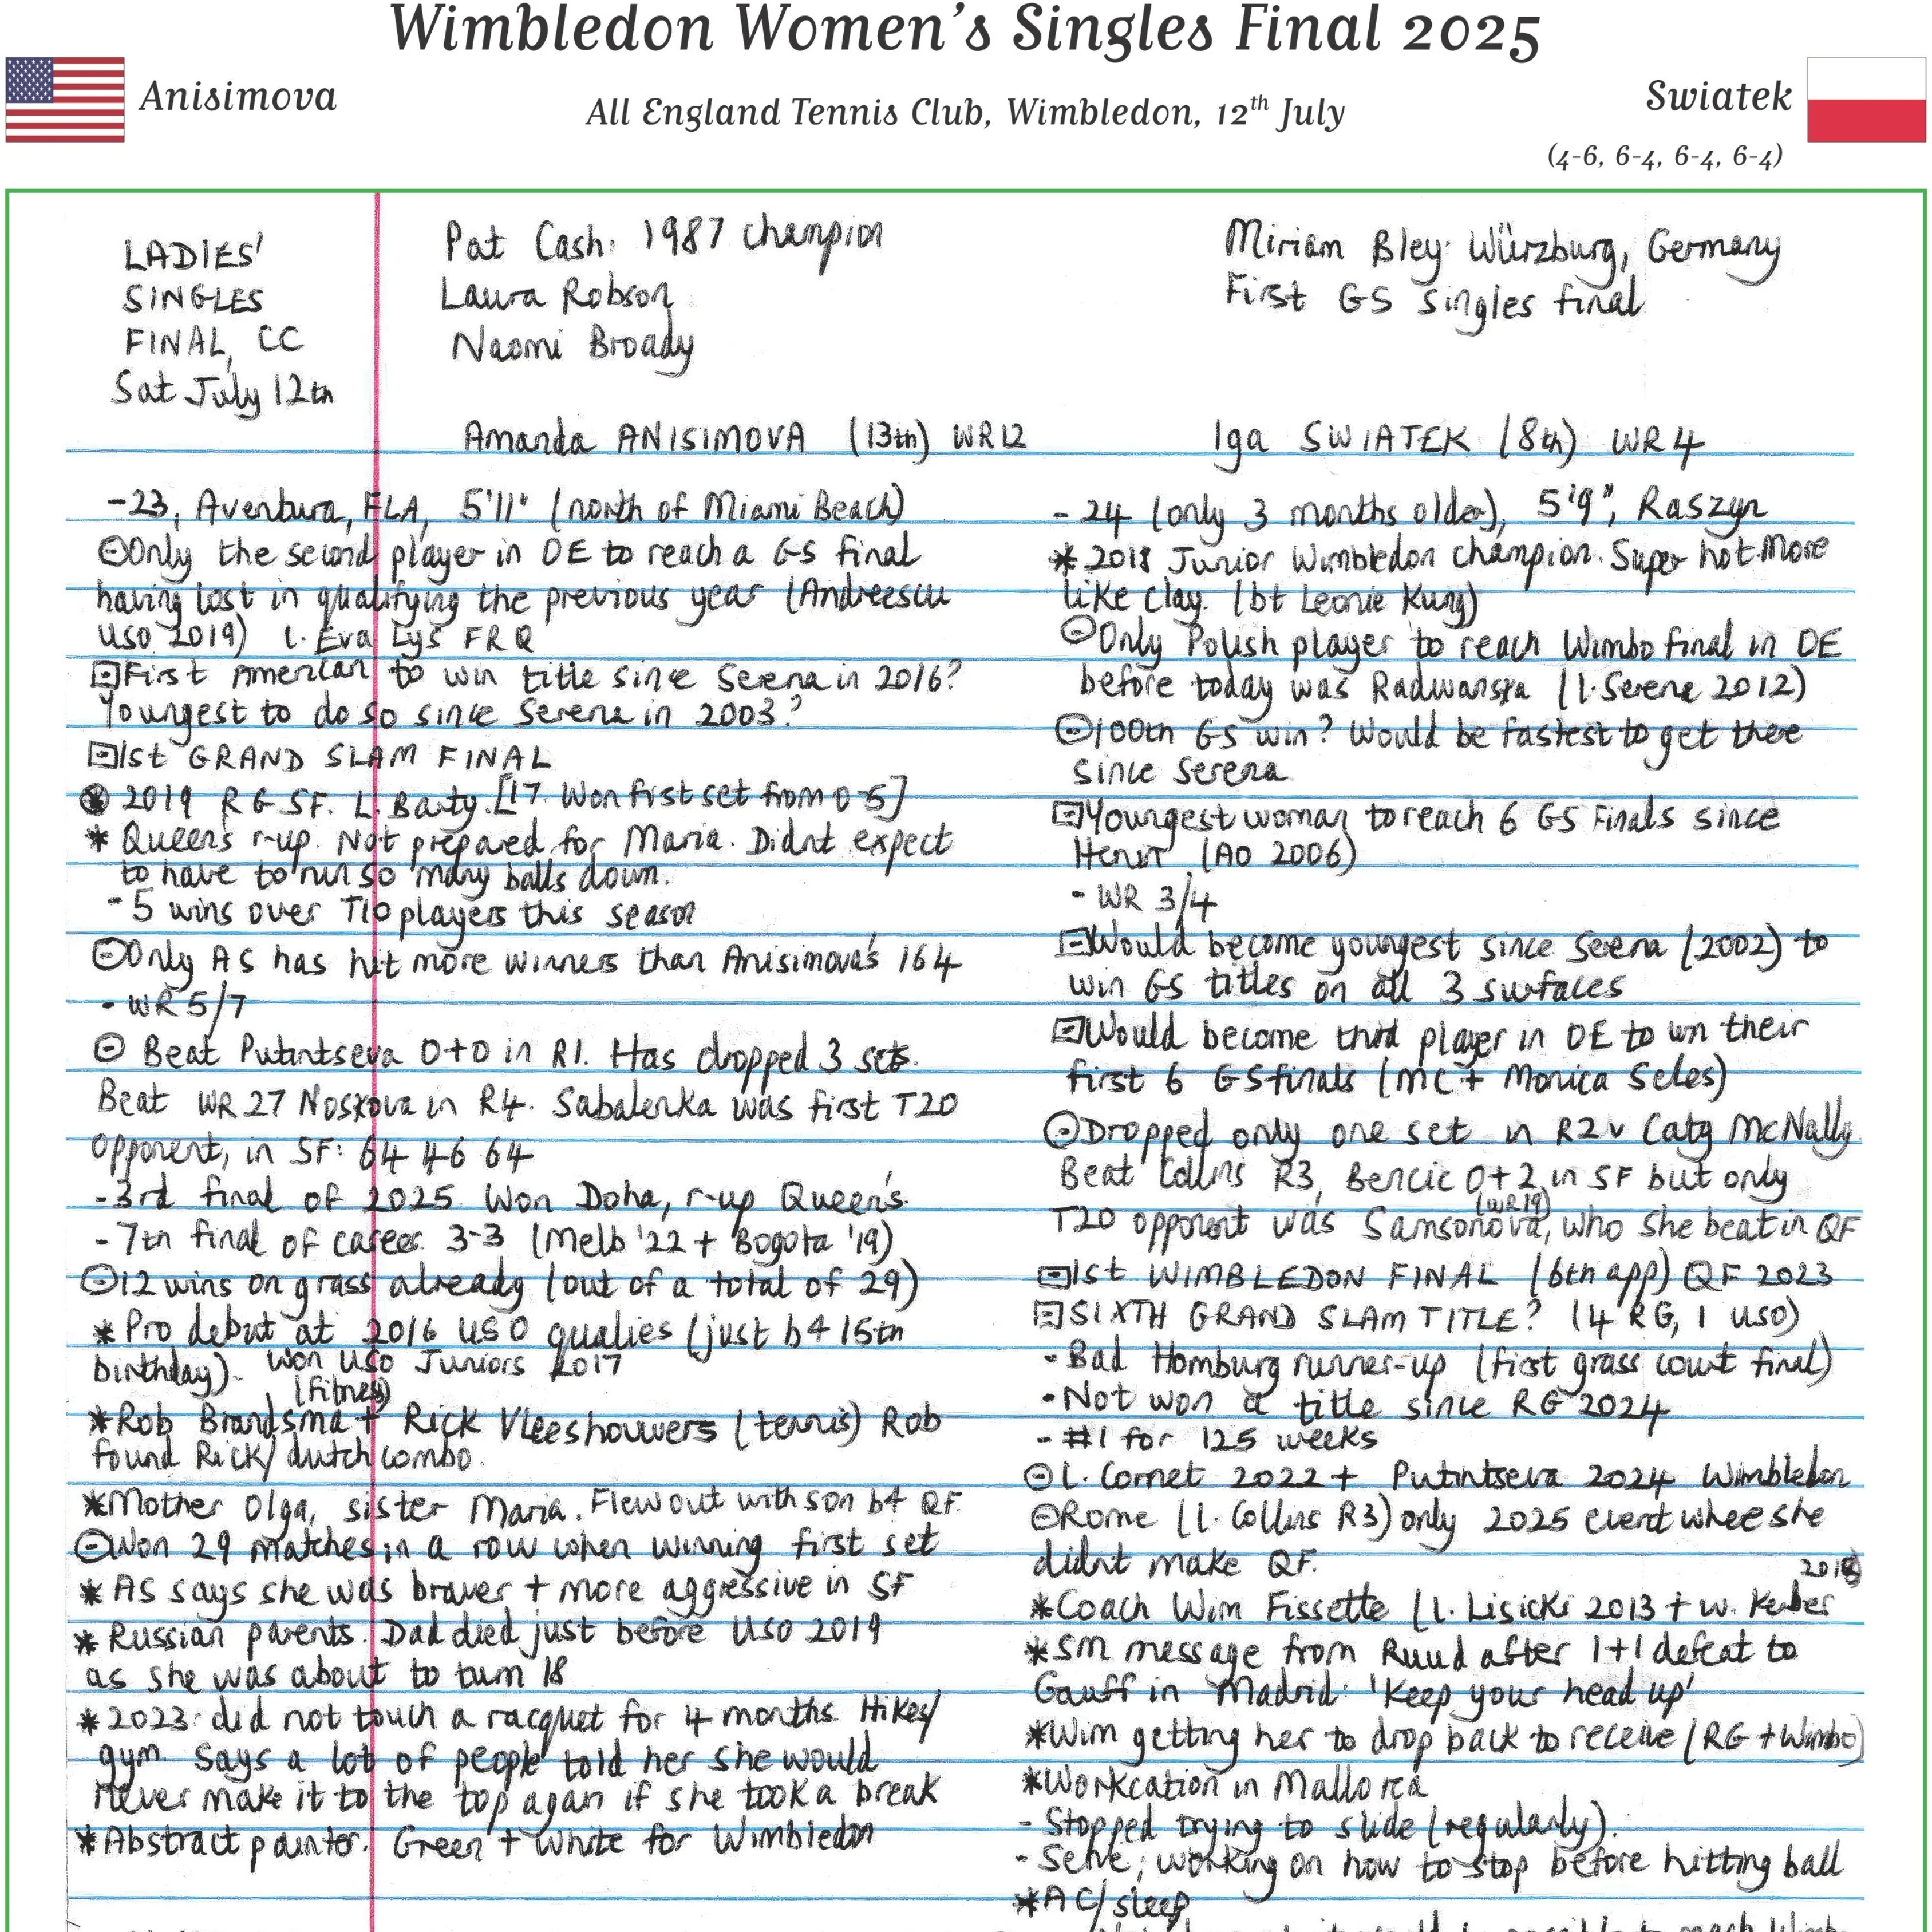 Wimbledon Women's Singles Final 2025
Anisimova
All England Tennis Club, Wimbledon, 12th July
Swiatek
(4-6, 6-4, 6-4, 6-4)
LADIES'
SINGLES
FINAL, CC
Sat July 12th
Pat Cash: 1987 champion
Laura Robson
Naomi Broady
Miriam Bley: Würzburg, Germany
First GS singles final
Amanda ANISIMOVA (13th) WR12
-23, Aventura, FLA, 5'11" (north of Miami Beach)
Only the second player in OE to reach a GS final
having lost in qualifying the previous year (Andreescu
USO 2019) l. Eva Lys FRQ
First American to win title since Serena in 2016?
Youngest to do so since Serena in 2003?
1st GRAND SLAM FINAL
2019 RG SF. L. Barty. [17. Won first set from 0-5]
* Queen's r-up. Not prepared for Maria. Didnt expect
to have to run so many balls down.
- 5 wins over T10 players this season
Only AS has hit more winners than Anisimova's 164
- WR 5/7
Beat Putintseva 0+0 in R1. Has dropped 3 sets.
Beat WR 27 Noskova in R4. Sabalenka was first T20
opponent, in SF: 64 46 64
-3rd final of 2025. Won Doha, r-up Queen's.
- 7th final of career. 3-3 (Melb '22 + Bogota '19)
12 wins on grass already (out of a total of 29)
* Pro debut at 2016 USO qualies (just b4 15th
birthday). Won USO Juniors 2017
(fitness)
*Rob Brandsma + Rick Vleeshouwers (tennis) Rob
found Rick/ dutch combo.
*Mother Olga, sister Maria. Flew out with son b4 QF.
Won 29 matches in a row when winning first set
* AS says she was braver + more aggressive in SF
* Russian parents. Dad died just before USO 2019
as she was about to turn 18
*2023: did not touch a racquet for 4 months. Hikes/
gym. Says a lot of people told her she would
never make it to the top again if she took a break
*Abstract painter. Green + white for Wimbledon
Iga SWIATEK (8th) WR 4
- 24 (only 3 months older), 5'9", Raszyn
* 2018 Junior Wimbledon champion. Super hot. More
like clay. (bt Leonie Kung)
Only Polish player to reach Wimbo final in OE
before today was Radwanska (l. Serena 2012)
100th GS win? Would be fastest to get there
since Serena
Youngest woman to reach 6 GS Finals since
Henin (AO 2006)
- WR 3/4
Would become youngest since Serena (2002) to
win GS titles on all 3 surfaces
Would become third player in OE to win their
first 6 GS finals (MC + Monica Seles)
Dropped only one set in R2 v Caty McNally
Beat Collins R3, Bencic 0+2 in SF but only
(WR19)
T20 opponent was Samsonova, who she beat in QF
1st WIMBLEDON FINAL (6th app) QF 2023
SIXTH GRAND SLAM TITLE? (4 RG, 1 USO)
- Bad Homburg runner-up (first grass court final)
- Not won a title since RG 2024
- #1 for 125 weeks
l. Cornet 2022 + Putintseva 2024 Wimbledon
Rome (l. Collins R3) only 2025 event where she
didnt make QF.
2018
*Coach Wim Fissette (l. Lisicki 2013 + w. Kerber
*SM message from Ruud after 1+1 defeat to
Gauff in Madrid: 'Keep your head up'
*Wim getting her to drop back to receive (RG + Wimbo)
*Workcation in Mallorca
- Stopped trying to slide (regularly).
- Serve; working on how to stop before hitting ball
*AC/ sleep